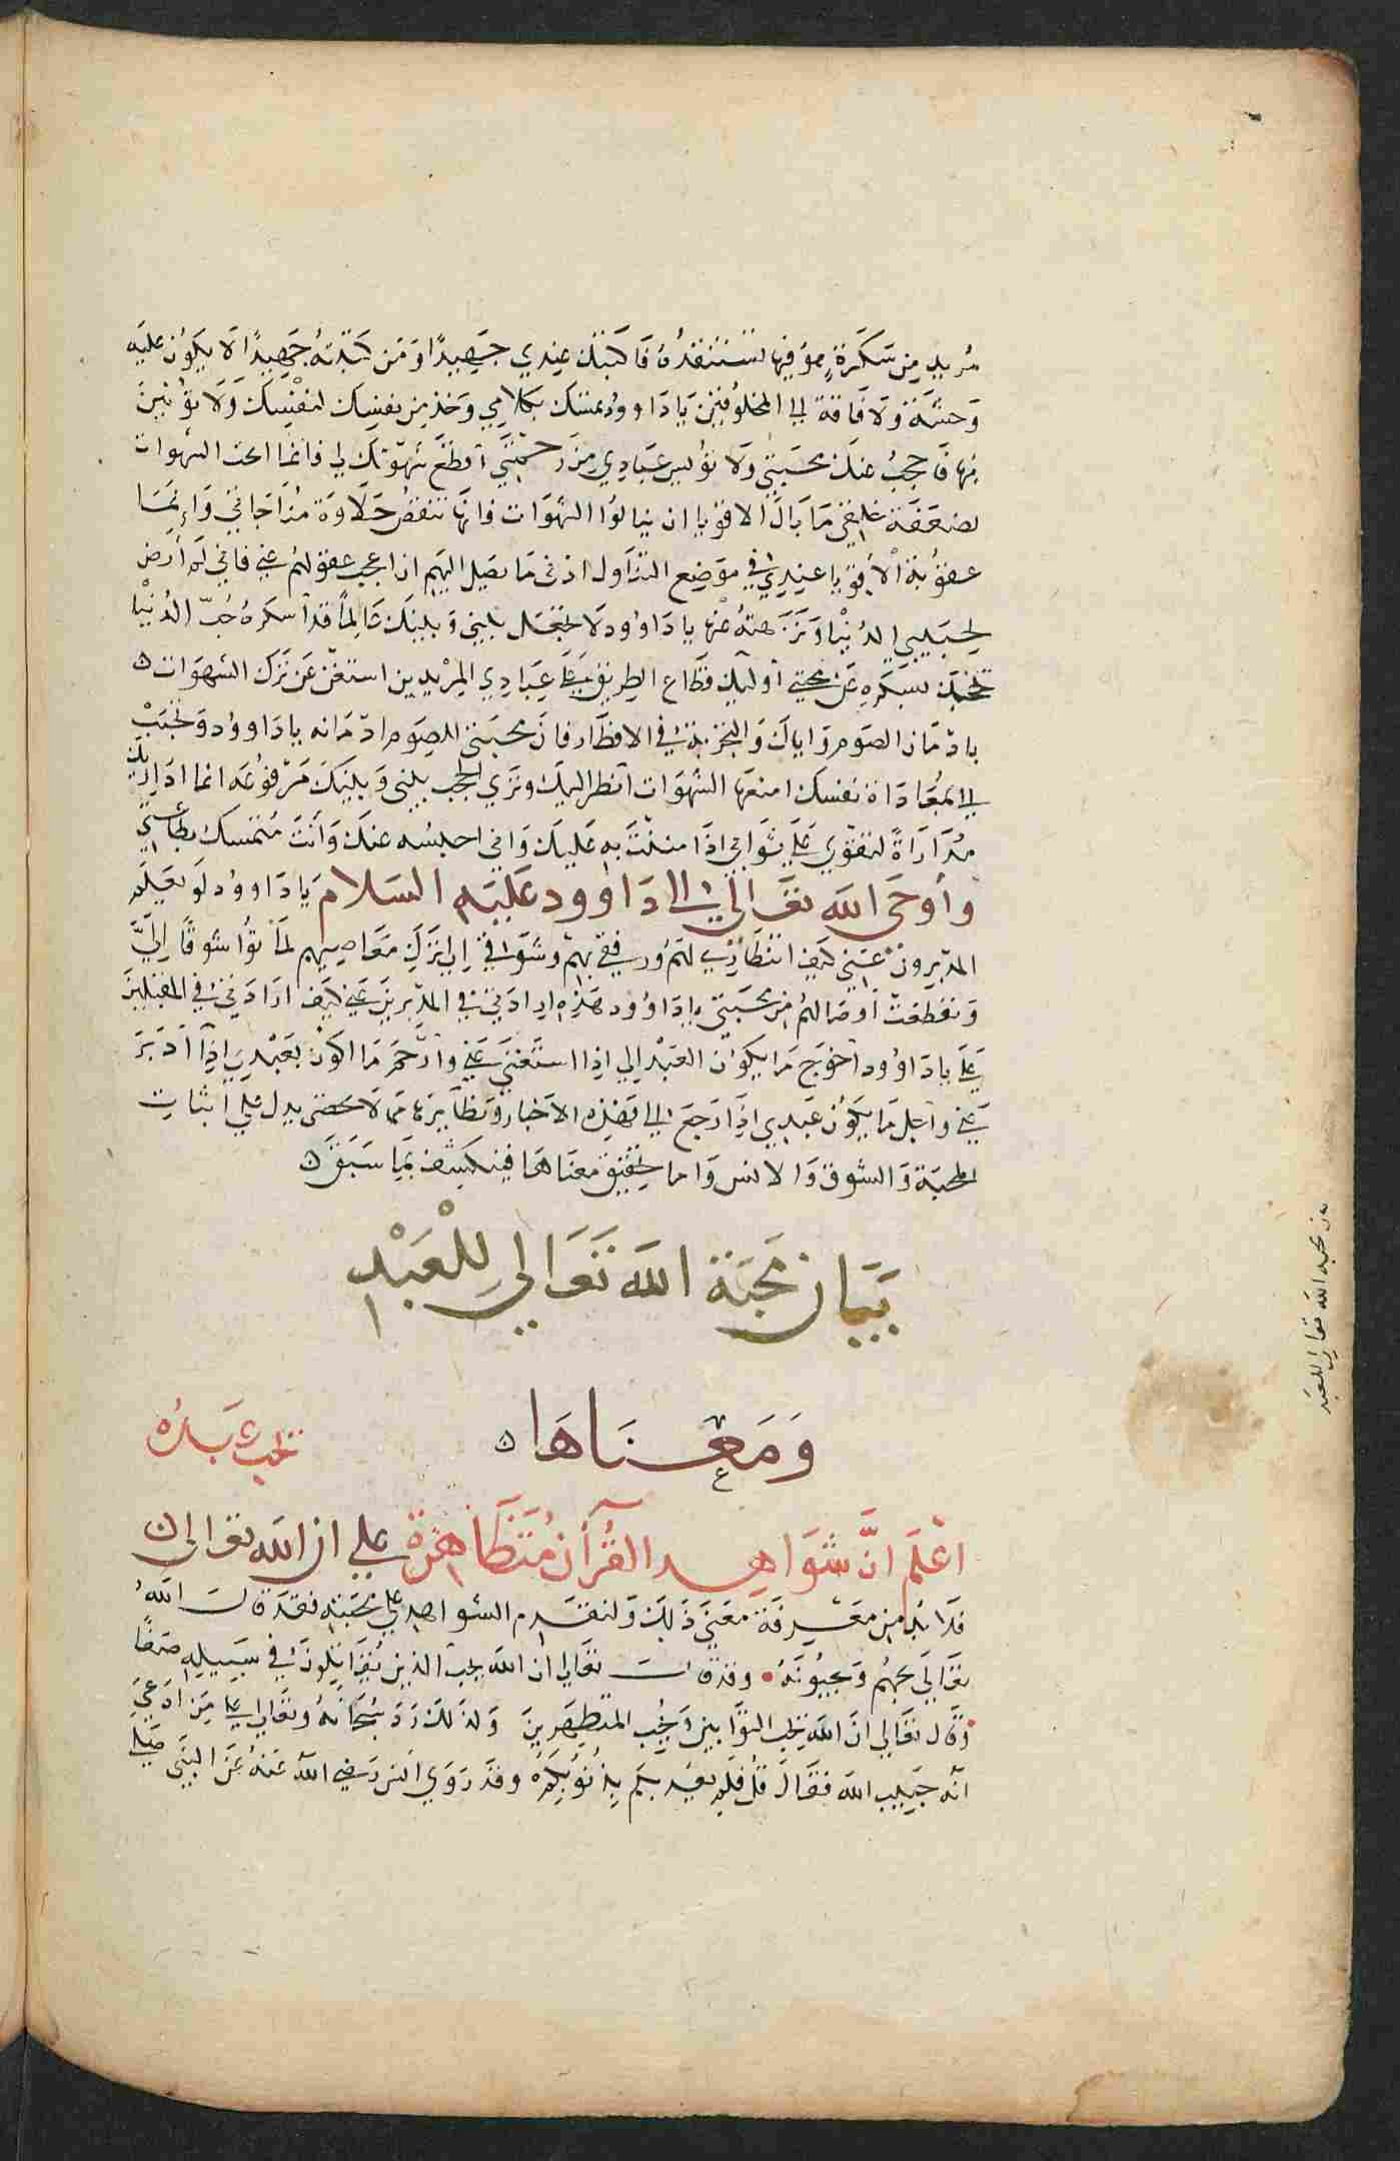 مُريد من سَكرَةٍ هو فيها تستنقذهُ فاكتبك عندي جَهِيدًا وَمَن كتبته جَهِيدًا لا يكون عليه
وَحشَة وَلا فاقة إلى المخلوقين يا داوود تمسّك بكلامي وخذ من نفسك لنفسك وَلا تؤتين
منها فاحجبُ عنك محبتي وَلا تؤيس عبادي من رحمتي اقطع شهوتك لي فانما ابحت الشهوات
لضعفة خلقي ما بال الاقويا ان ينالوا الشهوات فانها تنقض حلاوة مناجاتي وانما
عقوبة الاقويا عندي في موضع التناول ادنى ما يصل اليهم ان احجب عقولهم عني فاني لم أرض
لحبيبي الدنيا ونزهته عنها يا داوود لا تجعل بيني وبينك عالما قد أسكره حُبّ الدنيا
تحجبك بسكره عن محبتي أوليك قطاع الطريق على عبادي المريدين استعن عَن ترك الشهوات
بادمان الصوم واياك والتجربة في الافطار فان محبتي للصوم ادمانه يا داوود وتحبب
إلى بمعاداة نفسك امنعها الشهوات انظر اليك وترى الحجب بيني وبينك مرفوعه انما اداريك
مُدَاراةً لتقوي على ثوابي اذا مننت به عليك واني احبسه عنك وأنت متمسك بطاعتي
وأوحى الله تعالى الى داوود عليه السلام يا داوود لو يعلم
المدبرون عني كيف انتظاري لهم ورفقي بهم وشوقي إلى ترك معاصيهم لماتوا شوقًا إليّ
وتقطعت أوصالهم من محبتي يا داوود هذه ارادتي في المدبرين عني كيف ارادتي في المقبلين
علي يا داوود أحوج ما يكون العبد إلي اذا استغنى عني وارحم ما اكون بعبدي إذا أدبر
عني واجل ما يكون عبدي إذا رجع إلي فهذه الاخبار ونظايرها مما لا يحصى يدل على اثبات
المحبة والشوق والانس وانما تحقيق معناها ينكشف بما سبق
بَيَان محبّة الله تَعَالى لِلْعَبْدِ
وَمَعْنَاهَا
اعْلَم انَّ شَوَاهِد القُرآن مُتظَاهِرة على ان الله تعالى
يحب عبده
فلا بد من معرفة معنى ذلك ولنقدم الشواهد على محبته فقد قال الله
تعالى يحبهم ويحبونه وقد قال تعالى ان الله يحب الذين يُقاتلون في سبيله صفًا
وقال تعالى ان الله يحب التوّابين ويحب المتطهرين ولذلك رد سبحانه وتعالى على من ادعى
انه حبيب الله فقال قل فلم يعذبكم بذنوبكم وقد روي انس رضي الله عنه عن النبي صلى
بيان محبة الله تعالى للعبد